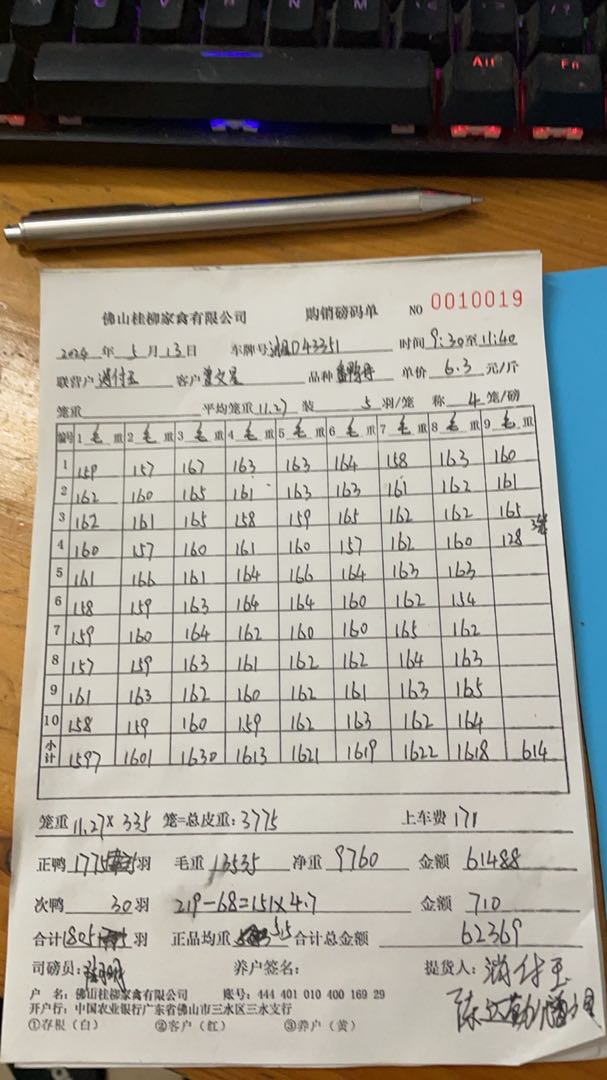 Alt Fn
佛山桂柳家禽有限公司 购销磅码单 NO 0010019
2024年 5月 13日 车牌号 湘D43351 时间 9:30至11:40
联营户 客户 品种 单价 6.3 元/斤
笼重 平均笼重 11.27 装 5 羽/笼 称 4 笼/磅
编号 1 毛 重 2 毛 重 3 毛 重 4 毛 重 5 毛 重 6 毛 重 7 毛 重 8 毛 重 9 毛 重
1 159 157 167 163 163 164 158 163 160
2 162 160 165 161 163 163 161 162 161
3 162 161 165 158 159 165 162 162 165
4 160 157 160 161 160 157 162 160 128
5 161 166 161 164 166 164 163 163
6 158 159 163 164 164 160 162 154
7 159 160 164 162 160 160 165 162
8 157 159 163 161 162 162 164 163
9 161 163 162 160 162 161 163 165
10 158 159 160 159 162 163 162 164
小计 1597 1601 1630 1613 1621 1619 1622 1618 614
笼重 11.27× 335 笼=总皮重: 3775 上车费 171
正鸭 1775 羽 毛重 13535 净重 9760 金额 61488
次鸭 30 羽 219-68=151×4.7 金额 710
合计 1805 羽 正品均重 5.5 合计总金额 62369
司磅员: 养户签名: 提货人:
户 名: 佛山桂柳家禽有限公司 账号: 444 401 010 400 169 29
开户行: 中国农业银行广东省佛山市三水区三水支行
①存根(白) ②客户(红) ③养户(黄)